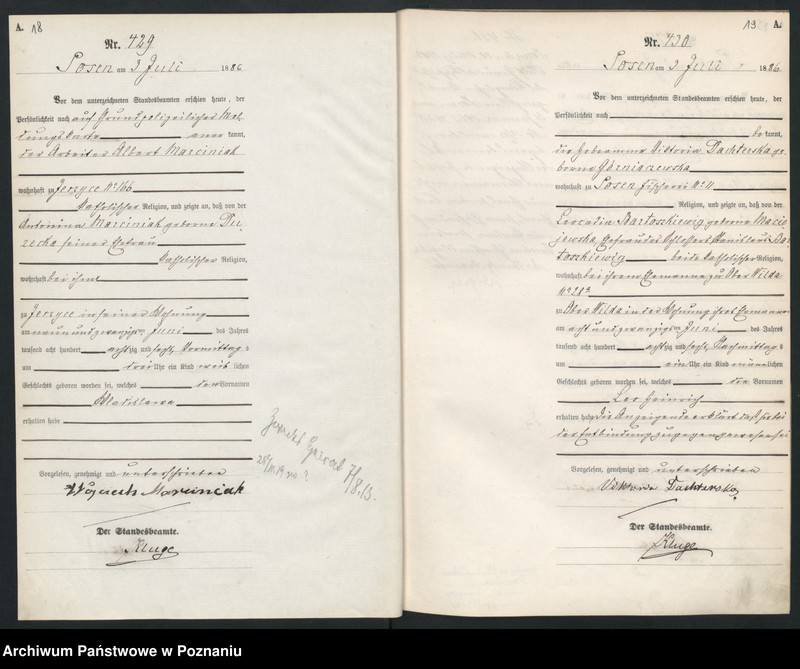 A. 18
Nr. 429
Posen am 3 Juli 1886
Vor dem unterzeichneten Standesbeamten erschien heute, der
Persönlichkeit nach auf Grund polizeilicher Mel
dungskarte aner kannt,
der Arbeiter Albert Marciniak
wohnhaft zu Jerzyce No 166
katholischer Religion, und zeigte an, daß von der
Antonina Marciniak geborne Du
recka seiner Ehefrau
katholischer Religion,
wohnhaft bei ihm
zu Jerzyce in seiner Wohnung
am neun und zwanzigsten Juni des Jahres
tausend acht hundert achtzig und sechs, Vormittags
um drei Uhr ein Kind weib lichen
Geschlechts geboren worden sei, welches den Vornamen
Wladislawa
erhalten habe
Vorgelesen, genehmigt und unterschrieben
Wojciech Marciniak
Der Standesbeamte.
Kluge
19 A.
Nr. 430
Posen am 3 Juli 1886
Vor dem unterzeichneten Standesbeamten erschien heute, der
Persönlichkeit nach
be kannt,
die Hebeamme Viktoria Dachterska ge
borne Górniaczewska
wohnhaft zu Posen Fischerei No 11
Religion, und zeigte an, daß von der
Leocadia Bartoszkiewicz geborne Macie
jewska, Ehefrau des Schlossers Stanislaus Bar
toszkiewicz beide katholischer Religion,
wohnhaft bei ihrem Ehemanne zu Ober Wilda
No 28
zu Ober Wilda in der Wohnung ihres Ehemannes
am acht und zwanzigsten Juni des Jahres
tausend acht hundert achtzig und sechs, Nachmittags
um ein Uhr ein Kind männlichen
Geschlechts geboren worden sei, welches die Vornamen
Leo Heinrich
erhalten habe. Die Anzeigende erklärt daß sie bei
der Entbindung zugegen gewesen sei
Vorgelesen, genehmigt und unterschrieben
Viktoria Dachterska
Der Standesbeamte.
Kluge
Archiwum Państwowe w Poznaniu